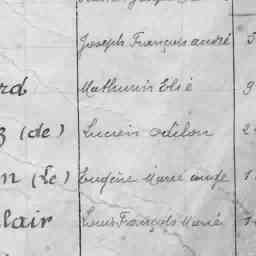 Joseph François andré 5
rd Mathurin Elie 9
z (de) Lucien odilon 2
n (Le) Eugène Marie ange 1
lair Louis François Marie 1